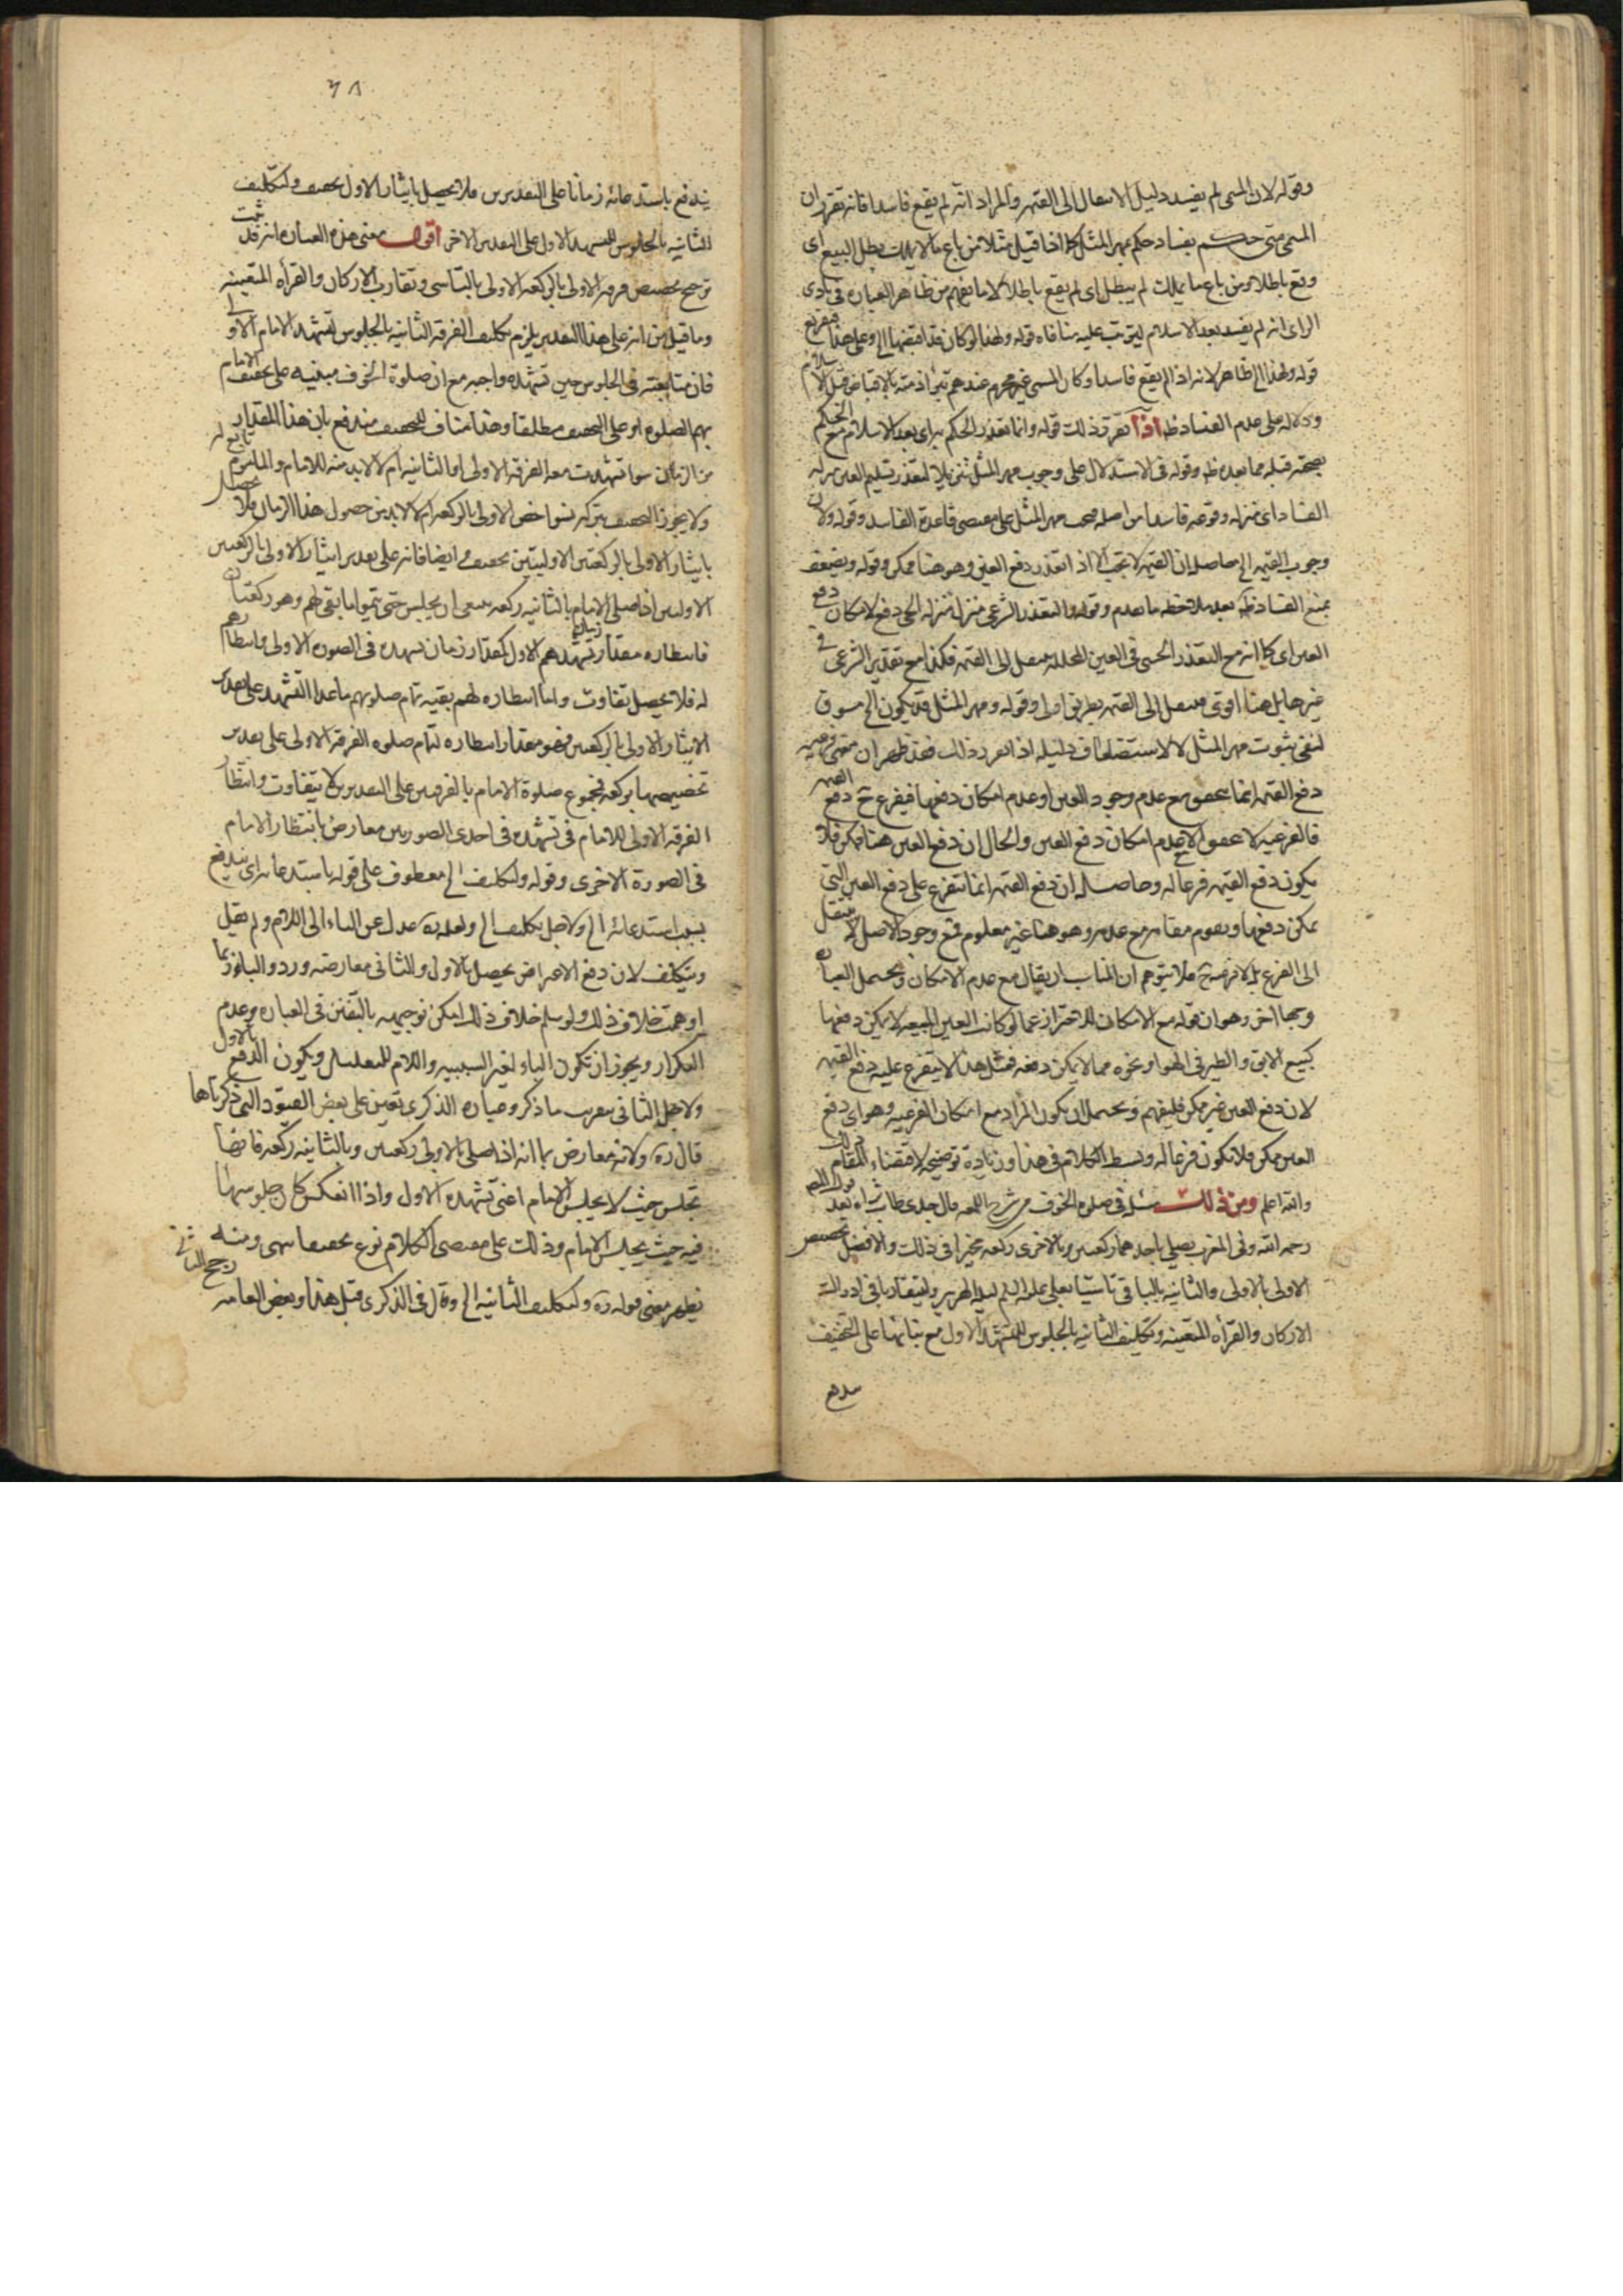 وقوله لان المسمى لم يفسد دليل الانتقال الى القيمه والمراد انه لم يقع فاسدا فانه تقرر ان
المسمى متى حكم بفساده حكم بمهر المثل كما اذا قيل مثلا من باع مالا يملك بطل البيع اى
وقع باطلا ومن باع ما يملك لم يبطل اى لم يقع باطلا لا ما يفهم من ظاهر العباره فى بادى
الراى انه لم يفسد بعد الاسلام ليترتب عليه منافاه قوله ولهذا لو كان قد اقبضها الخ وعلى هذا فتفريع
قوله ولهذا الخ ظاهر لانه اذا لم يقع فاسدا وكان المسمى غير محرم عندهم تبرأ ذمته بالاقباض قبل الاسلام
ودلاله على عدم الفساد ظ اذا تقرر ذلك قوله وانما تعذر الحكم به اى بعد الاسلام مع الحكم
بصحته قبله مما بعده ظ وقوله فى الاستدلال على وجوب مهر المثل تنزيلا لتعذر تسليم العين منزله
الفساد اى منزله وقوعه فاسدا من اصله فيجب مهر المثل على مقتضى قاعدة الفاسد وقوله ولان
وجوب القيمه الخ حاصله ان القيمه لا تجب الا اذا تعذر دفع العين وهو هنا ممكن وقوله ويضعف
بمنع الفساد ظ بعد ملاحظه ما تقدم وقوله والتعذر الشرعى منزل منزله الحسى دفع لامكان دفع
العين اى كما انه مع التعذر الحسى فى العين المحلله ينتقل الى القيمه فكذا مع تقدير الشرعى فى
غير حايل هنا اقوى فينتقل الى القيمه بطريق اولى وقوله ومهر المثل قد يكون الخ مسوق
لنفى ثبوت مهر المثل لا لاستضعاف دليله اذا تقرر ذلك فقد ظهر ان معنى فرعيه
دفع القيمه انما يتحقق مع عدم وجود العين او عدم امكان دفعها فيفرع ح دفع القيمه
فالفرعيه لا تتحقق الا مع عدم امكان دفع العين والحال ان دفع العين هنا ممكن فلا
يكون دفع القيمه فرعا له وحاصله ان دفع القيمه انما يتفرع على دفع العين التى
يمكن دفعها ويقوم مقامه مع عدمه وهو هنا غير معلوم فمع وجود الاصل لا ينتقل
الى الفرع بل لا فرعيه ح فلا يتوهم ان المناسب ان يقال مع عدم الامكان ويحتمل العباره
وجها اخر وهو ان قوله مع الامكان للاحتراز عما لو كانت العين المبيعه لا يمكن دفعها
كبيع الابق والطير فى الهوا ونحوه مما لا يمكن دفعه فمثل هذا لا يتفرع عليه دفع القيمه
لان دفع العين غير ممكن فليفهم ويحتمل ان يكون المراد مع امكان الفرعيه وهو اى دفع
العين ممكن فلا تكون فرعا له وبسط الكلام فى هذا وزيادة توضيحه لاقتضاء المقام ذلك
والله اعلم ومن ذلك مسئله فى صلوه الخوف من شرح اللمعه قال جدى طاب ثراه بعد قول المص
رحمه الله وفى المغرب يصلى باحدهما ركعتين وبالاخرى ركعه مخيرا فى ذلك والافضل تخصيص
الاولى بالاولى والثانيه بالباقى تاسيا بعلى عليه السلم ليله الهرير وليتقاربا فى ادراك
الاركان والقرأه المتعينه وتكليف الثانيه بالجلوس للتشهد الاول مع بنائها على التخفيف
يندفع
٦٨
يندفع باستدعائه زمانا على التقديرين فلا يحصل بايثار الاول تخفيف ولتكليف
الثانيه بالجلوس للتشهد الاول على التقدير الاخر اقول معنى هذه العباره انه قد ثبت
ترجيح تخصيص فرقه الاولى بالركعه الاولى بالتاسى وتقارب الاركان والقرأه المتعينه
وما قيل من انه على هذا التقدير يلزم تكليف الفرقه الثانيه بالجلوس لتشهد الامام الاولى
فان متابعته فى الجلوس حين تشهده واجبه مع ان صلوة الخوف مبنيه على تخفيف الامام
بهم الصلوه او على التخفيف مطلقا وهذا مناف للتخفيف مندفع بان هذا المقدار
من الزمان سوا تشهدت معه الفرقه الاولى او الثانيه ام لا لابد منه للامام والماموم تابع له
ولا يجوز التخفيف بتركه سوا خص الاولى بالركعه ام لا لابد من حصول هذا الزمان فلا يحصل
بايثار الاولى بالركعتين الاوليتين تخفيف وايضا فانه على تقدير ايثار الاولى بالركعتين
الاوليين اذا صلى الامام بالثانيه ركعه ينبغى ان يجلس حتى يتموا ما بقى لهم وهو ركعتان
فانتظاره مقدار زمان تشهدهم الاول كمقدار زمان تشهده فى الصوره الاولى وانتظارهم
له فلا يحصل تفاوت واما انتظاره لهم بقيه تمام صلوتهم ما عدا التشهد على تقدير
الايثار الاولى بالركعتين فهو مقدار انتظاره لتمام صلوه الفرقه الاولى على تقدير
تخصيصها بركعه فمجموع صلوة الامام بالفرقتين على التقديرين لا يتفاوت وانتظار
الفرقه الاولى للامام فى تشهده فى احدى الصورتين معارض بانتظار الامام
فى الصورة الاخرى وقوله ولتكليف الخ معطوف على قوله باستدعائه اى يندفع
بسبب استدعائه الخ ولاجل تكليف الخ ولعله ره عدل عن الباء الى اللام ولم يقل
وبتكليف لان دفع الاعتراض يحصل بالاول والثانى معارضه وردو البا ربما
اوهمت خلاف ذلك ولو سلم خلاف ذلك امكن توجيهه بالتفنن فى العباره وعدم
التكرار ويجوز ان تكون الباء لغير السببيه واللام للتعليل ويكون الدفع بالاول
ولاجل الثانى بتقريب ما ذكر وعباره الذكرى تعين على بعض القيود التى ذكرناها
قال ره ولانه معارض بما انه اذا صلى بالاولى ركعتين وبالثانيه ركعه فايضا
تجلس حيث لا يجلس الامام اعنى تشهده الاول واذا انعكس كان جلوسها
فيه حيث يجلس الامام وذلك على مقتضى الكلام نوع تخفيف انتهى ومنه
يظهر معنى قوله ره ولتكليف الثانيه الخ وقال فى الذكرى قبل هذا وبعض العامه رجح الثانى